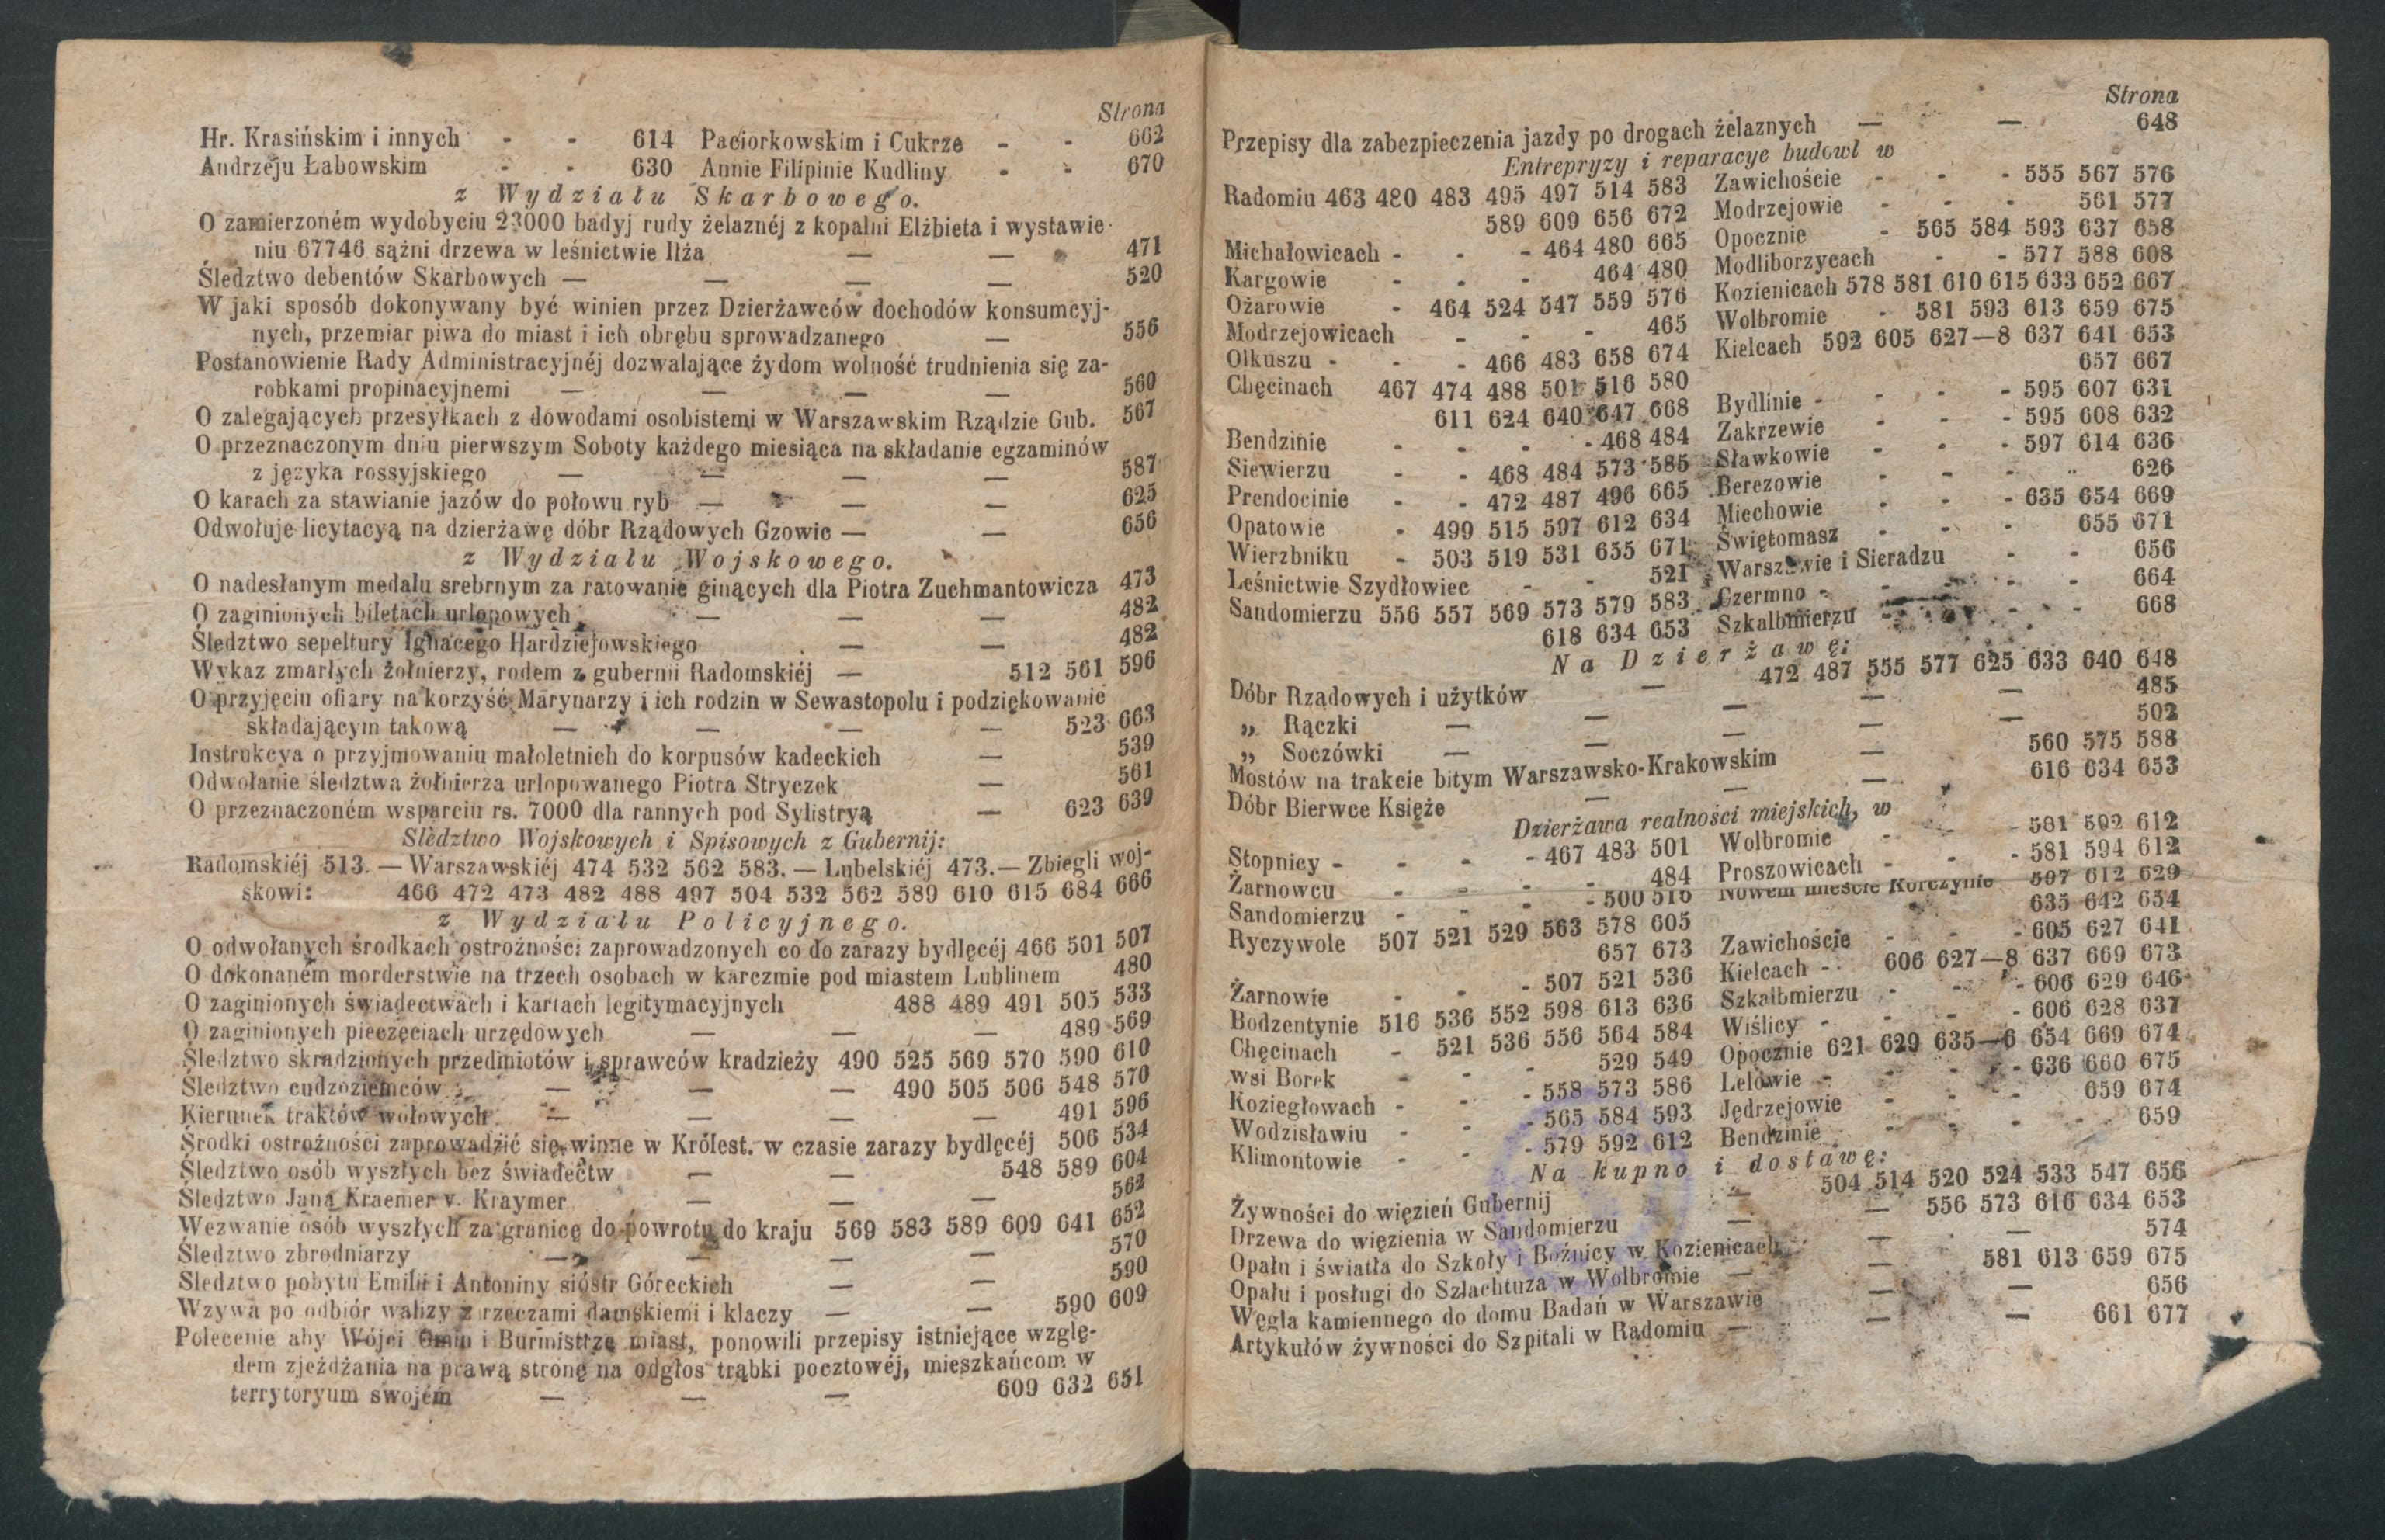 Strona
Hr. Krasińskim i innych - - 614 Paciorkowskim i Cukrze - - 662
Andrzeju Łabowskim - - 630 Annie Filipinie Kudliny - - 670
z Wydziału Skarbowego.
O zamierzoném wydobyciu 23000 badyj rudy żelaznéj z kopalni Elżbieta i wystawie-
niu 67746 sążni drzewa w leśnictwie Iłża — — 471
Śledztwo debentów Skarbowych — — — — 520
W jaki sposób dokonywany być winien przez Dzierżawców dochodów konsumcyj-
nych, przemiar piwa do miast i ich obrębu sprowadzanego — 556
Postanowienie Rady Administracyjnéj dozwalające żydom wolność trudnienia się za-
robkami propinacyjnemi — — — — 560
O zalegających przesyłkach z dowodami osobistemi w Warszawskim Rządzie Gub. 567
O przeznaczonym dniu pierwszym Soboty każdego miesiąca na składanie egzaminów
z języka rossyjskiego — — — — 587
O karach za stawianie jazów do połowu ryb — — — — 625
Odwołuje licytacyą na dzierżawę dóbr Rządowych Gzowic — — 656
z Wydziału Wojskowego.
O nadesłanym medalu srebrnym za ratowanie ginących dla Piotra Zuchmantowicza 473
O zaginionych biletach urlopowych — — — 482
Śledztwo sepeltury Ignacego Hardziejowskiego — — 482
Wykaz zmarłych żołnierzy, rodem z gubernii Radomskiéj — 512 561 596
O przyjęciu ofiary na korzyść Marynarzy i ich rodzin w Sewastopolu i podziękowanie
składającym takową — — — — 523 663
Instrukcya o przyjmowaniu małoletnich do korpusów kadeckich — 539
Odwołanie śledztwa żołnierza urlopowanego Piotra Stryczek — 561
O przeznaczoném wsparciu rs. 7000 dla rannych pod Sylistryą — 623 639
Slèdztwo Wojskowych i Spisowych z Gubernij:
Radomskiéj 513. — Warszawskiéj 474 532 562 583. — Lubelskiéj 473. — Zbiegli woj-
skowi: 466 472 473 482 488 497 504 532 562 589 610 615 684 666
z Wydziału Policyjnego.
O odwołanych środkach ostrożności zaprowadzonych co do zarazy bydlęcéj 466 501 507
O dokonaném morderstwie na trzech osobach w karczmie pod miastem Lublinem 480
O zaginionych świadectwach i kartach legitymacyjnych 488 489 491 505 533
O zaginionych pieczęciach urzędowych — — — 489 569
Śledztwo skradzionych przedmiotów i sprawców kradzieży 490 525 569 570 590 610
Śledztwo cudzoziemców — — — 490 505 506 548 570
Kierunek traktów wołowych — — — — 491 596
Środki ostrożności zaprowadzić się winne w Królest. w czasie zarazy bydlęcéj 506 534
Śledztwo osób wyszłych bez świadectw — — 548 589 604
Śledztwo Jana Kraemer v. Kraymer — — — 562
Wezwanie osób wyszłych za granicę do powrotu do kraju 569 583 589 609 641 652
Śledztwo zbrodniarzy — — — — 570
Śledztwo pobytu Emilii i Antoniny sióstr Góreckich — — 590
Wzywa po odbiór walizy z rzeczami damskiemi i klaczy — — 590 609
Polecenie aby Wójci Gmin i Burmistrze miast, ponowili przepisy istniejące wzglę-
dem zjeżdżania na prawą stronę na odgłos trąbki pocztowéj, mieszkańcom w
terrytoryum swojém — — — 609 632 651
Strona
Przepisy dla zabezpieczenia jazdy po drogach żelaznych — — 648
Entrepryzy i reparacye budowl w
Radomiu 463 480 483 495 497 514 583 Zawichoście - - - 555 567 576
589 609 656 672 Modrzejowie - - - 561 577
Michałowicach - - - 464 480 665 Opocznie - 565 584 593 637 658
Kargowie - - - 464 480 Modliborzycach - - 577 588 608
Ożarowie - 464 524 547 559 576 Kozienicach 578 581 610 615 633 652 667
Modrzejowicach - - - 465 Wolbromie - 581 593 613 659 675
Olkuszu - - - 466 483 658 674 Kielcach 592 605 627—8 637 641 653
Chęcinach 467 474 488 501 516 580 657 667
611 624 640 647 668 Bydlinie - - - - 595 607 631
Bendzinie - - - - 468 484 Zakrzewie - - - 595 608 632
Siewierzu - - 468 484 573 585 Sławkowie - - - 597 614 636
Prendocinie - - 472 487 496 665 Berezowie - - - - 626
Opatowie - 499 515 597 612 634 Miechowie - - - 635 654 669
Wierzbniku - 503 519 531 655 671 Świętomasz - - - 655 671
Leśnictwie Szydłowiec - - 521 Warszawie i Sieradzu - - 656
Sandomierzu 556 557 569 573 579 583 Czermno - - - - 664
618 634 653 Szkalbmierzu - - - - 668
Na Dzierżawę:
Dóbr Rządowych i użytków — 472 487 555 577 625 633 640 648
„ Rączki — — — — — 485
„ Soczówki — — — — — 502
Mostów na trakcie bitym Warszawsko-Krakowskim — 560 575 588
Dóbr Bierwce Księże — — — 616 634 653
Dzierżawa realności miejskich, w
Stopnicy - - - - 467 483 501 Wolbromie - - - 581 592 612
Żarnowcu - - - - 484 Proszowicach - - - 581 594 612
Sandomierzu - - - - 500 516 Nowem mieście Korczynie 597 612 629
Ryczywole 507 521 529 563 578 605 635 642 654
657 673 Zawichoście - - - 605 627 641
Żarnowie - - - 507 521 536 Kielcach - 606 627—8 637 669 673
Bodzentynie 516 536 552 598 613 636 Szkalbmierzu - - - 606 629 646
Chęcinach - 521 536 556 564 584 Wiślicy - - - - 606 628 637
wsi Borek - - - 529 549 Opocznie 621 629 635—6 654 669 674
Koziegłowach - - - 558 573 586 Lelowie - - - - 636 660 675
Wodzisławiu - - - 565 584 593 Jędrzejowie - - - 659 674
Klimontowie - - - 579 592 612 Bendzinie - - - - 659
Na kupno i dostawę:
Żywności do więzień Gubernij — 504 514 520 524 533 547 656
Drzewa do więzienia w Sandomierzu — — 556 573 616 634 653
Opału i światła do Szkoły i Bożnicy w Kozienicach — — 574
Opału i posługi do Szlachtuza w Wolbromie — — 581 613 659 675
Węgla kamiennego do domu Badań w Warszawie — — 656
Artykułów żywności do Szpitali w Radomiu — — — 661 677